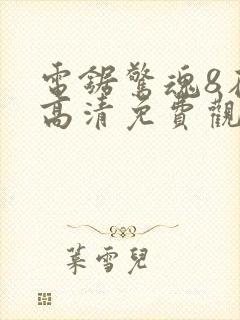 電鋸驚魂8在
高清免費觀
葉雪兒